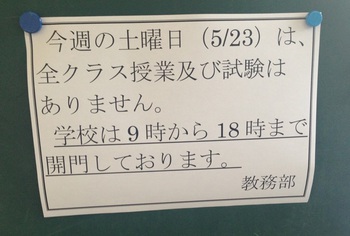 今週の土曜日（5/23）は、
全クラス授業及び試験は
ありません。
学校は9時から18時まで
開門しております。
教務部